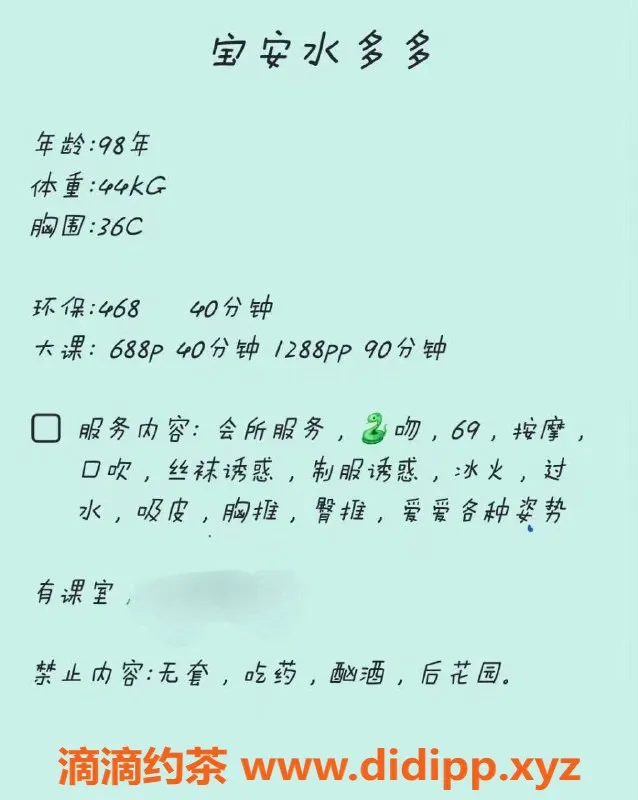 宝安水多多
年龄:98年
体重:44KG
胸围:36C
环保:468 40分钟
大课: 688p 40分钟 1288pp 90分钟
服务内容: 会所服务,🐍吻,69,按摩,
口吹,丝袜诱惑,制服诱惑,冰火,过
水,吸皮,胸推,臀推,爱爱各种姿势
有课室,
禁止内容:无套,吃药,酗酒,后花园。
滴滴约茶 www.didipp.xyz